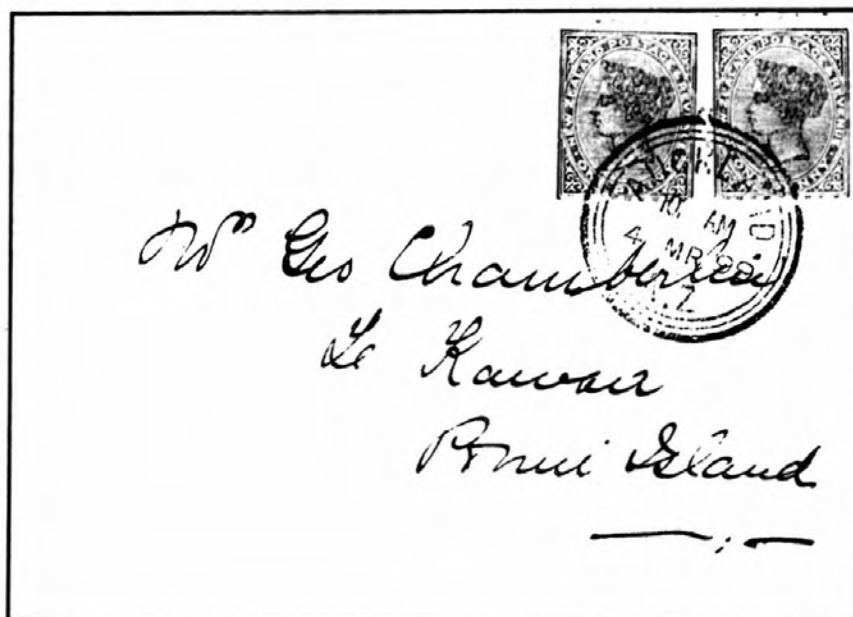 NEW ZEALAND POSTAGE & REVENUE
NEW ZEALAND POSTAGE & REVENUE
AUCKLAND
10 AM
4 MR
Z
Mrs Geo Chamberlin
Ponui Island